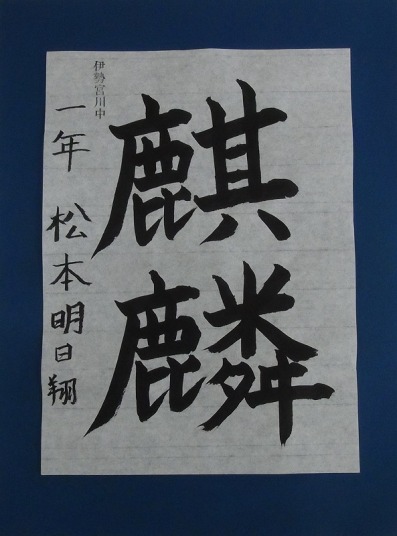 麒麟
伊勢宮川中
一年 松本明日翔